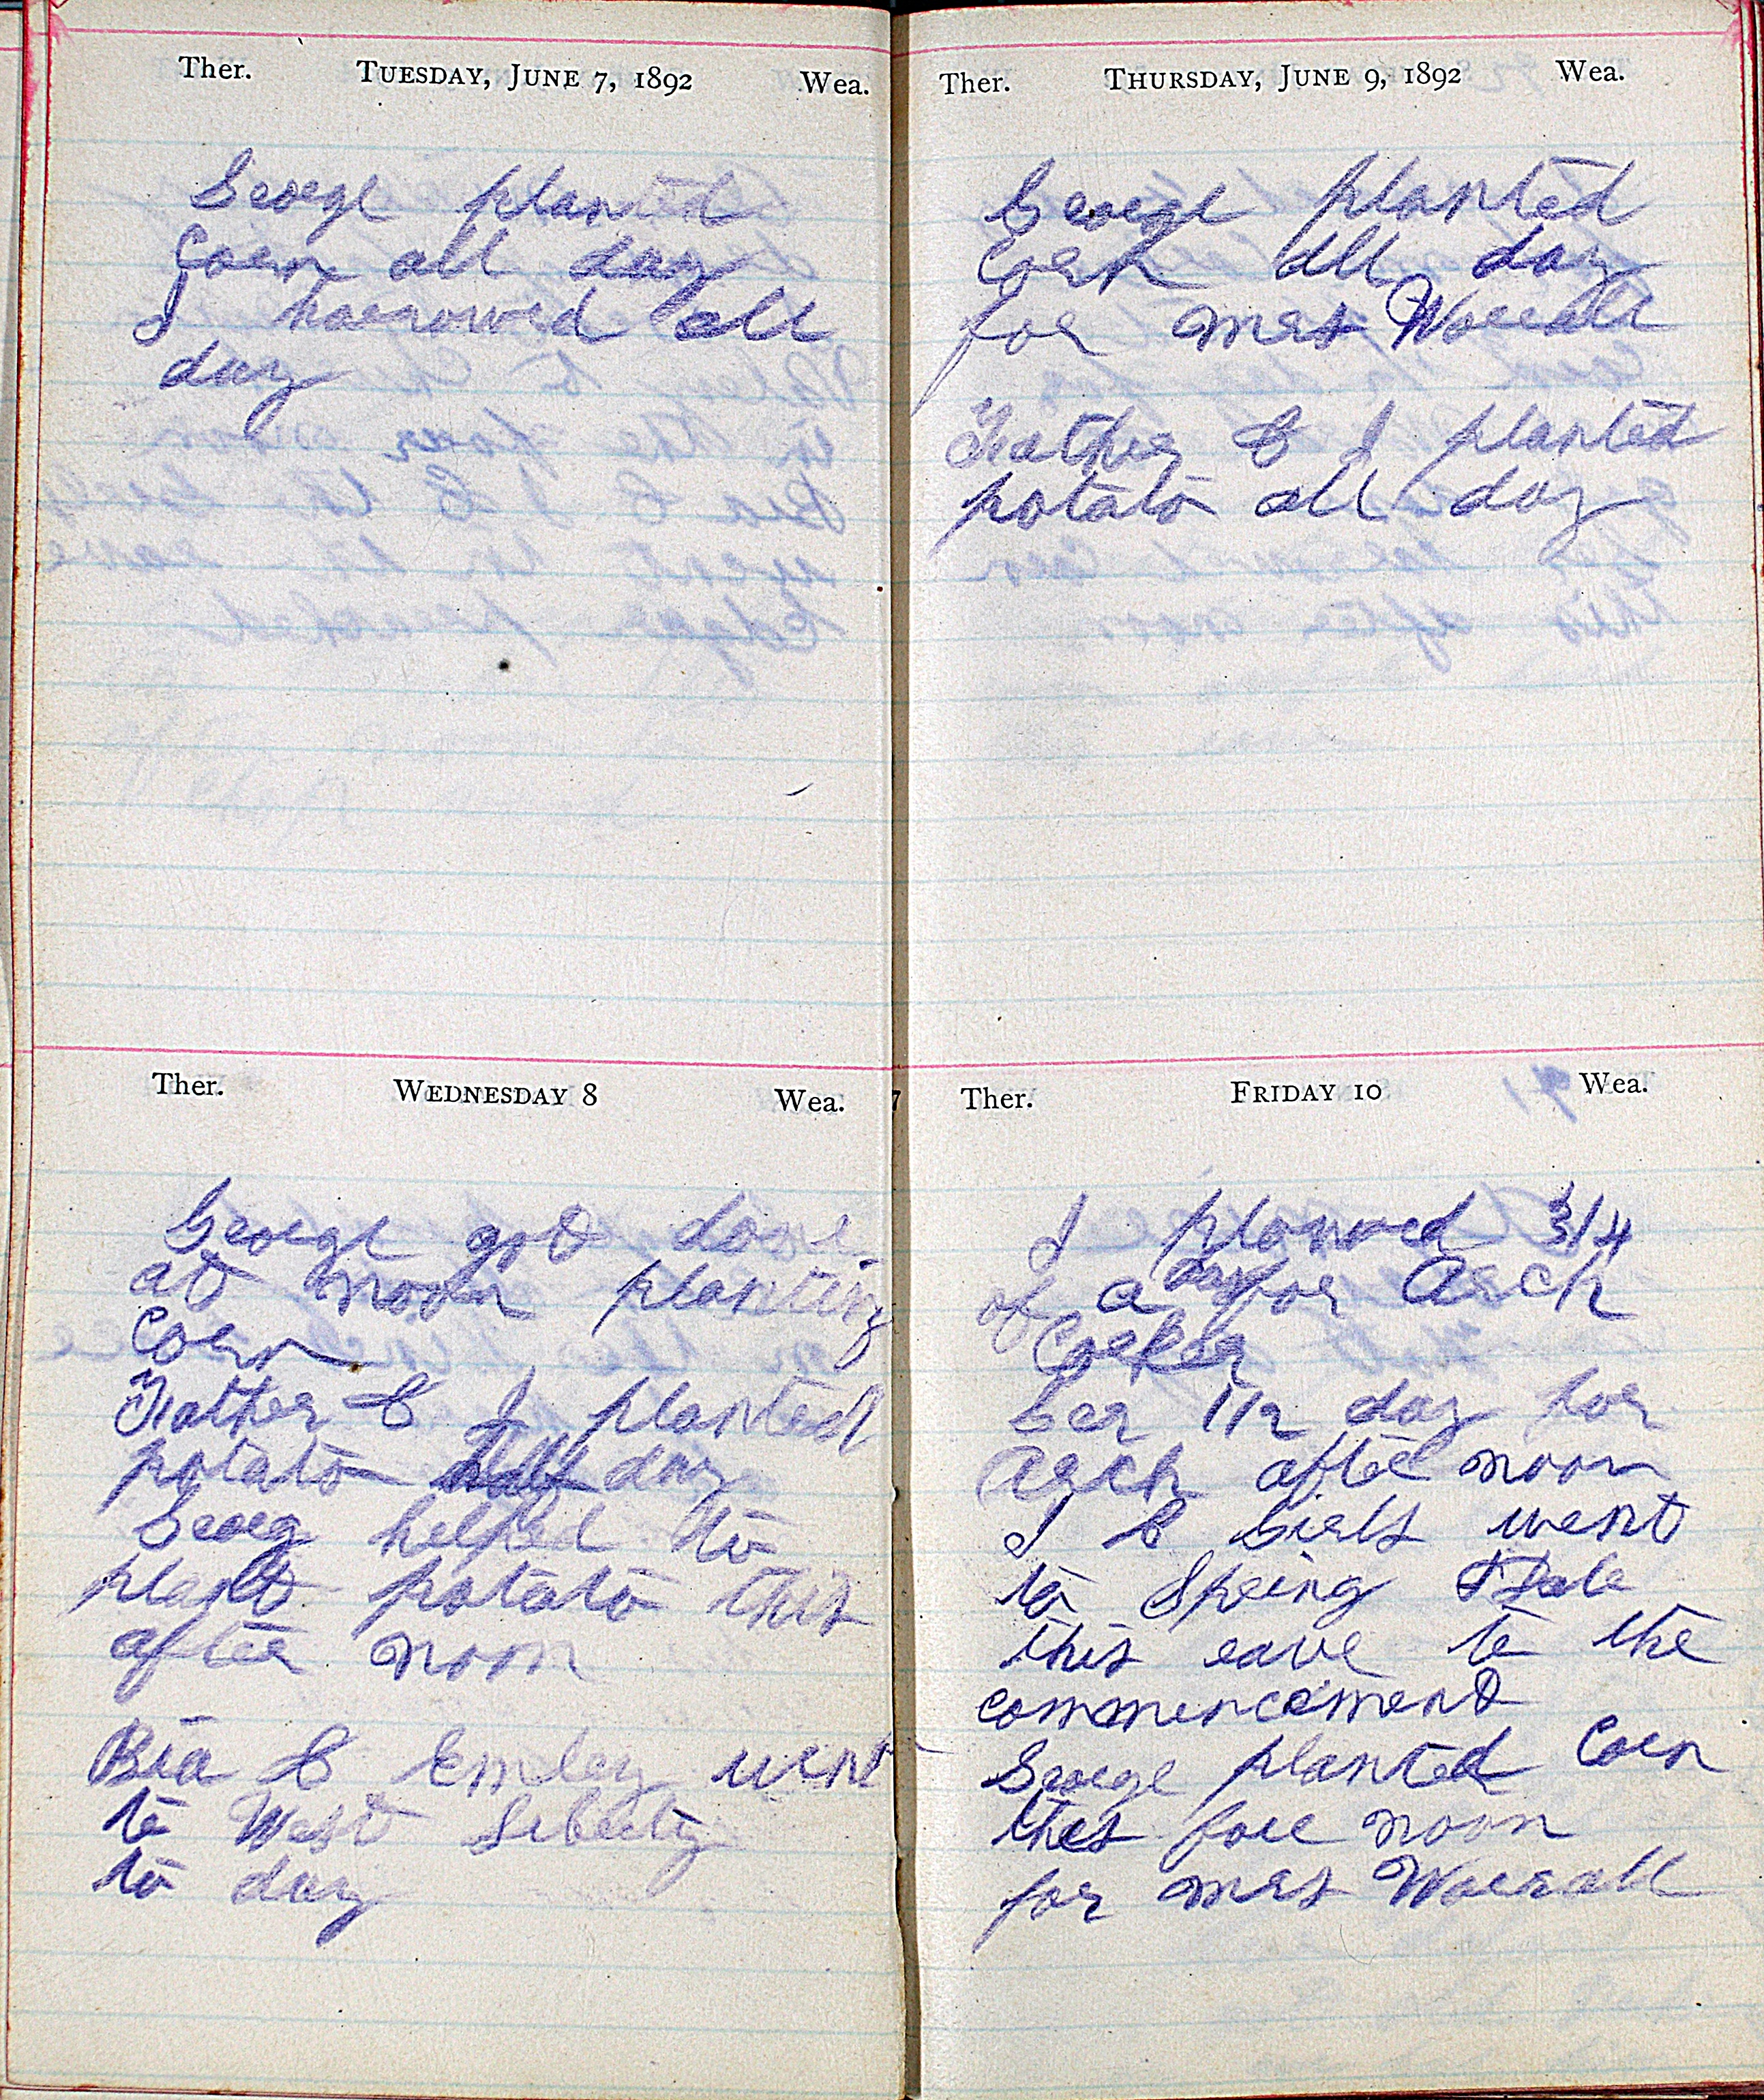 Ther. TUESDAY, JUNE 7, 1892 Wea.
George planted
Corn all day
I harrowed all
day
Ther. WEDNESDAY 8 Wea.
George got done
at noon planting
Corn
Father & I planted
potato day
Georg helped to
plant potato this
after noon
Bra & Emley went
to West Liberty
to day
Ther. THURSDAY, JUNE 9, 1892 Wea.
George planted
Corn all day
for Mrs Worrall
Father & I planted
potato all day
Ther. FRIDAY 10 Wea.
I plowed 3/4
of a day for Arch
Corker
Geo 1/2 day for
Arch after noon
I & Girls went
to Spring Dale
this eave to the
commencement
George planted Corn
this fore noon
for Mrs Worrall